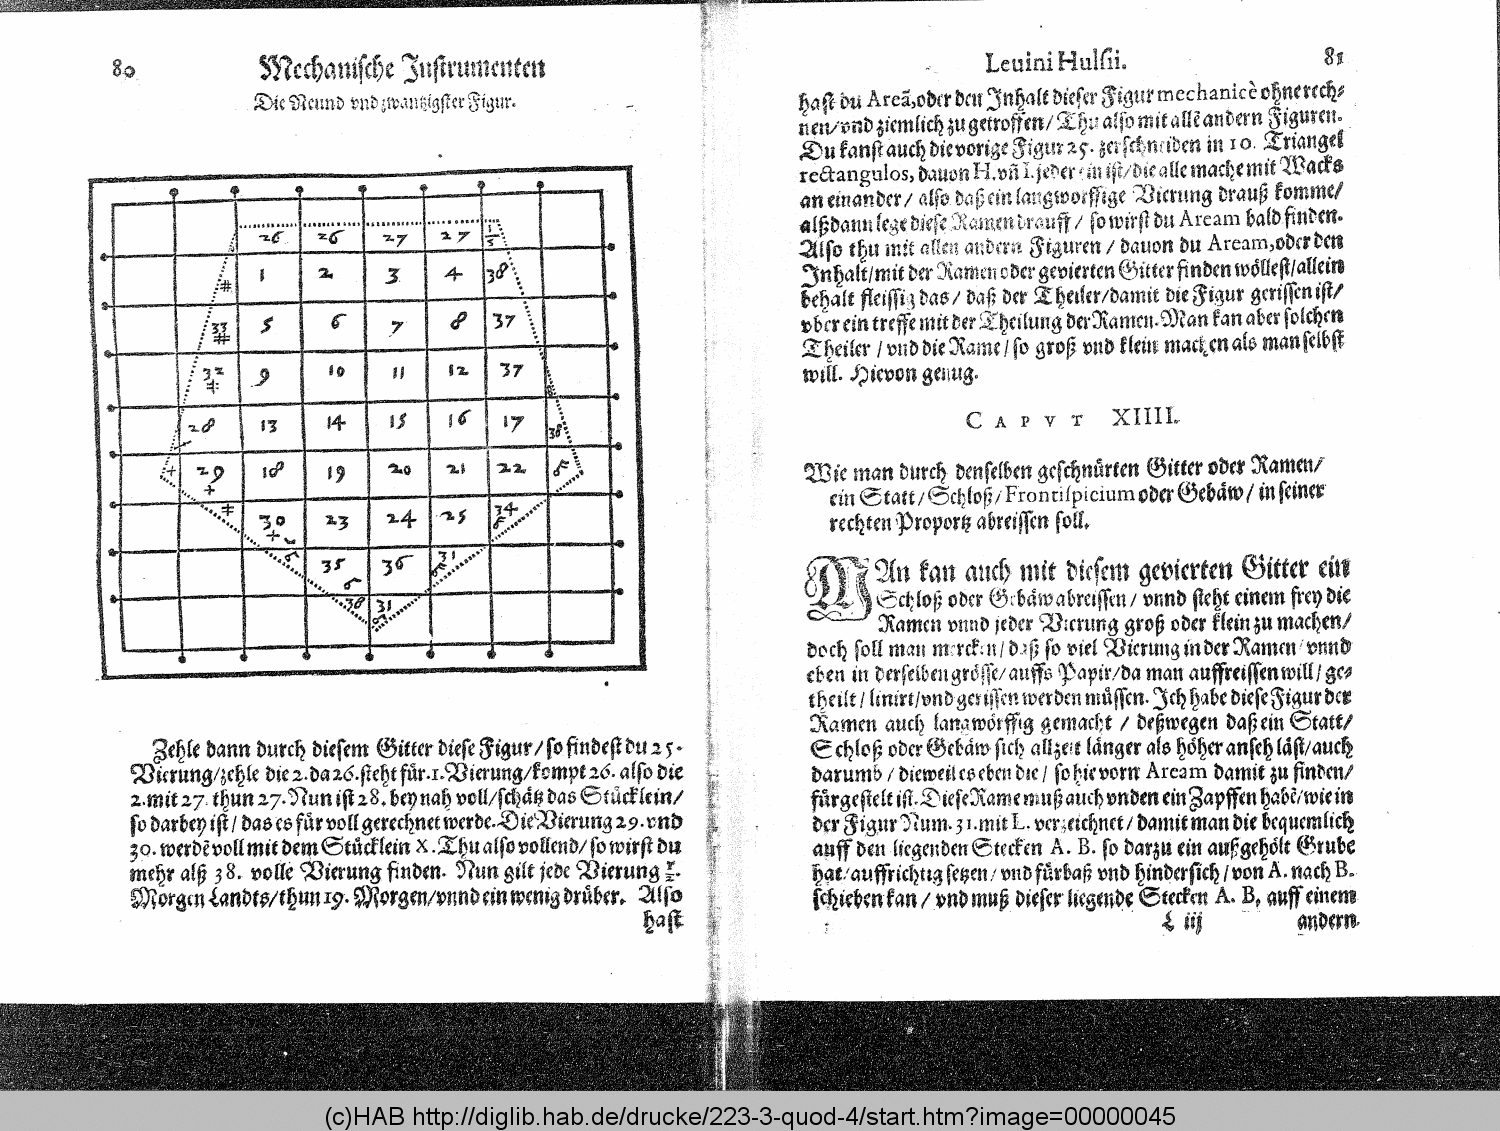 80
Mechanische Instrumenten
Die Neund vnd zwantzigster Figur.
26 26 27 27 1/3
# 1 2 3 4 38
33 # 5 6 7 8 37
32 # 9 10 11 12 37 8
28 13 14 15 16 17 38
+ 29 + 18 19 20 21 22 8
# 30 + 23 24 25 34 8
8 35 8 36 31 8
38 31
Zehle dann durch diesem Gitter diese Figur/ so findest du 25.
Vierung/zehle die 2. da 26. steht für .1. Vierung/kompt 26. also die
2. mit 27. thun 27. Nun ist 28. bey nah voll/schätz das Stücklein/
so darbey ist/ das es für voll gerechnet werde. Die Vierung 29. vnd
30. werdē voll mit dem Stücklein X. Thu also vollend/ so wirst du
mehr alß 38. volle Vierung finden. Nun gilt jede Vierung 1/2.
Morgen Landts/thun 19. Morgen/vnnd ein wenig drüber. Also
hast
Leuini Hulsii.
81
hast du Areā, oder den Inhalt dieser Figur mechanicè ohne rech-
nen/vnd ziemlich zu getroffen/ Thu also mit allē andern Figuren.
Du kanst auch die vorige Figur 25. zerschneiden in 10. Triangel
rectangulos, dauon H. vñ I. jeder ein ist/die alle mache mit Wachs
an einander/ also daß ein langworffige Vierung drauß komme/
alßdann lege diese Ramen drauff/ so wirst du Aream bald finden.
Also thu mit allen andern Figuren/ dauon du Aream, oder den
Inhalt/mit der Ramen oder gevierten Gitter finden wöllest/allein
behalt fleissig das/ daß der Theiler/damit die Figur gerissen ist/
vber ein treffe mit der Theilung der Ramen. Man kan aber solchen
Theiler/ vnd die Rame/ so groß vnd klein machen als man selbst
will. Hievon genug.
CAPVT XIIII.
Wie man durch denselben geschnürten Gitter oder Ramen/
ein Statt/Schloß/Frontispicium oder Gebäw/ in seiner
rechten Proportz abreissen soll.
MAn kan auch mit diesem gevierten Gitter ein
Schloß oder Gebäw abreissen/ vnnd steht einem frey die
Ramen vnnd jeder Vierung groß oder klein zu machen/
doch soll man mercken/ daß so viel Vierung in der Ramen vnnd
eben in derselben grösse/auffs Papir/da man auffreissen will/ ge-
theilt/ linirt/vnd gerissen werden müssen. Ich habe diese Figur der
Ramen auch langwörffig gemacht/ deßwegen daß ein Statt/
Schloß oder Gebäw sich allzeit länger als höher ansehē läst/auch
darumb/ dieweil es eben die/ so hie vorn Aream damit zu finden/
fürgestelt ist. Diese Rame muß auch vnden ein Zapffen habē/wie in
der Figur Num. 31. mit L. verzeichnet/ damit man die bequemlich
auff den liegenden Stecken A. B. so darzu ein außgehölt Grube
hat/auffrichtig setzen/ vnd fürbaß vnd hindersich/ von A. nach B.
schieben kan/ vnd muß dieser liegende Stecken A. B. auff einem
L iij
andern
(c)HAB http://diglib.hab.de/drucke/223-3-quod-4/start.htm?image=00000045